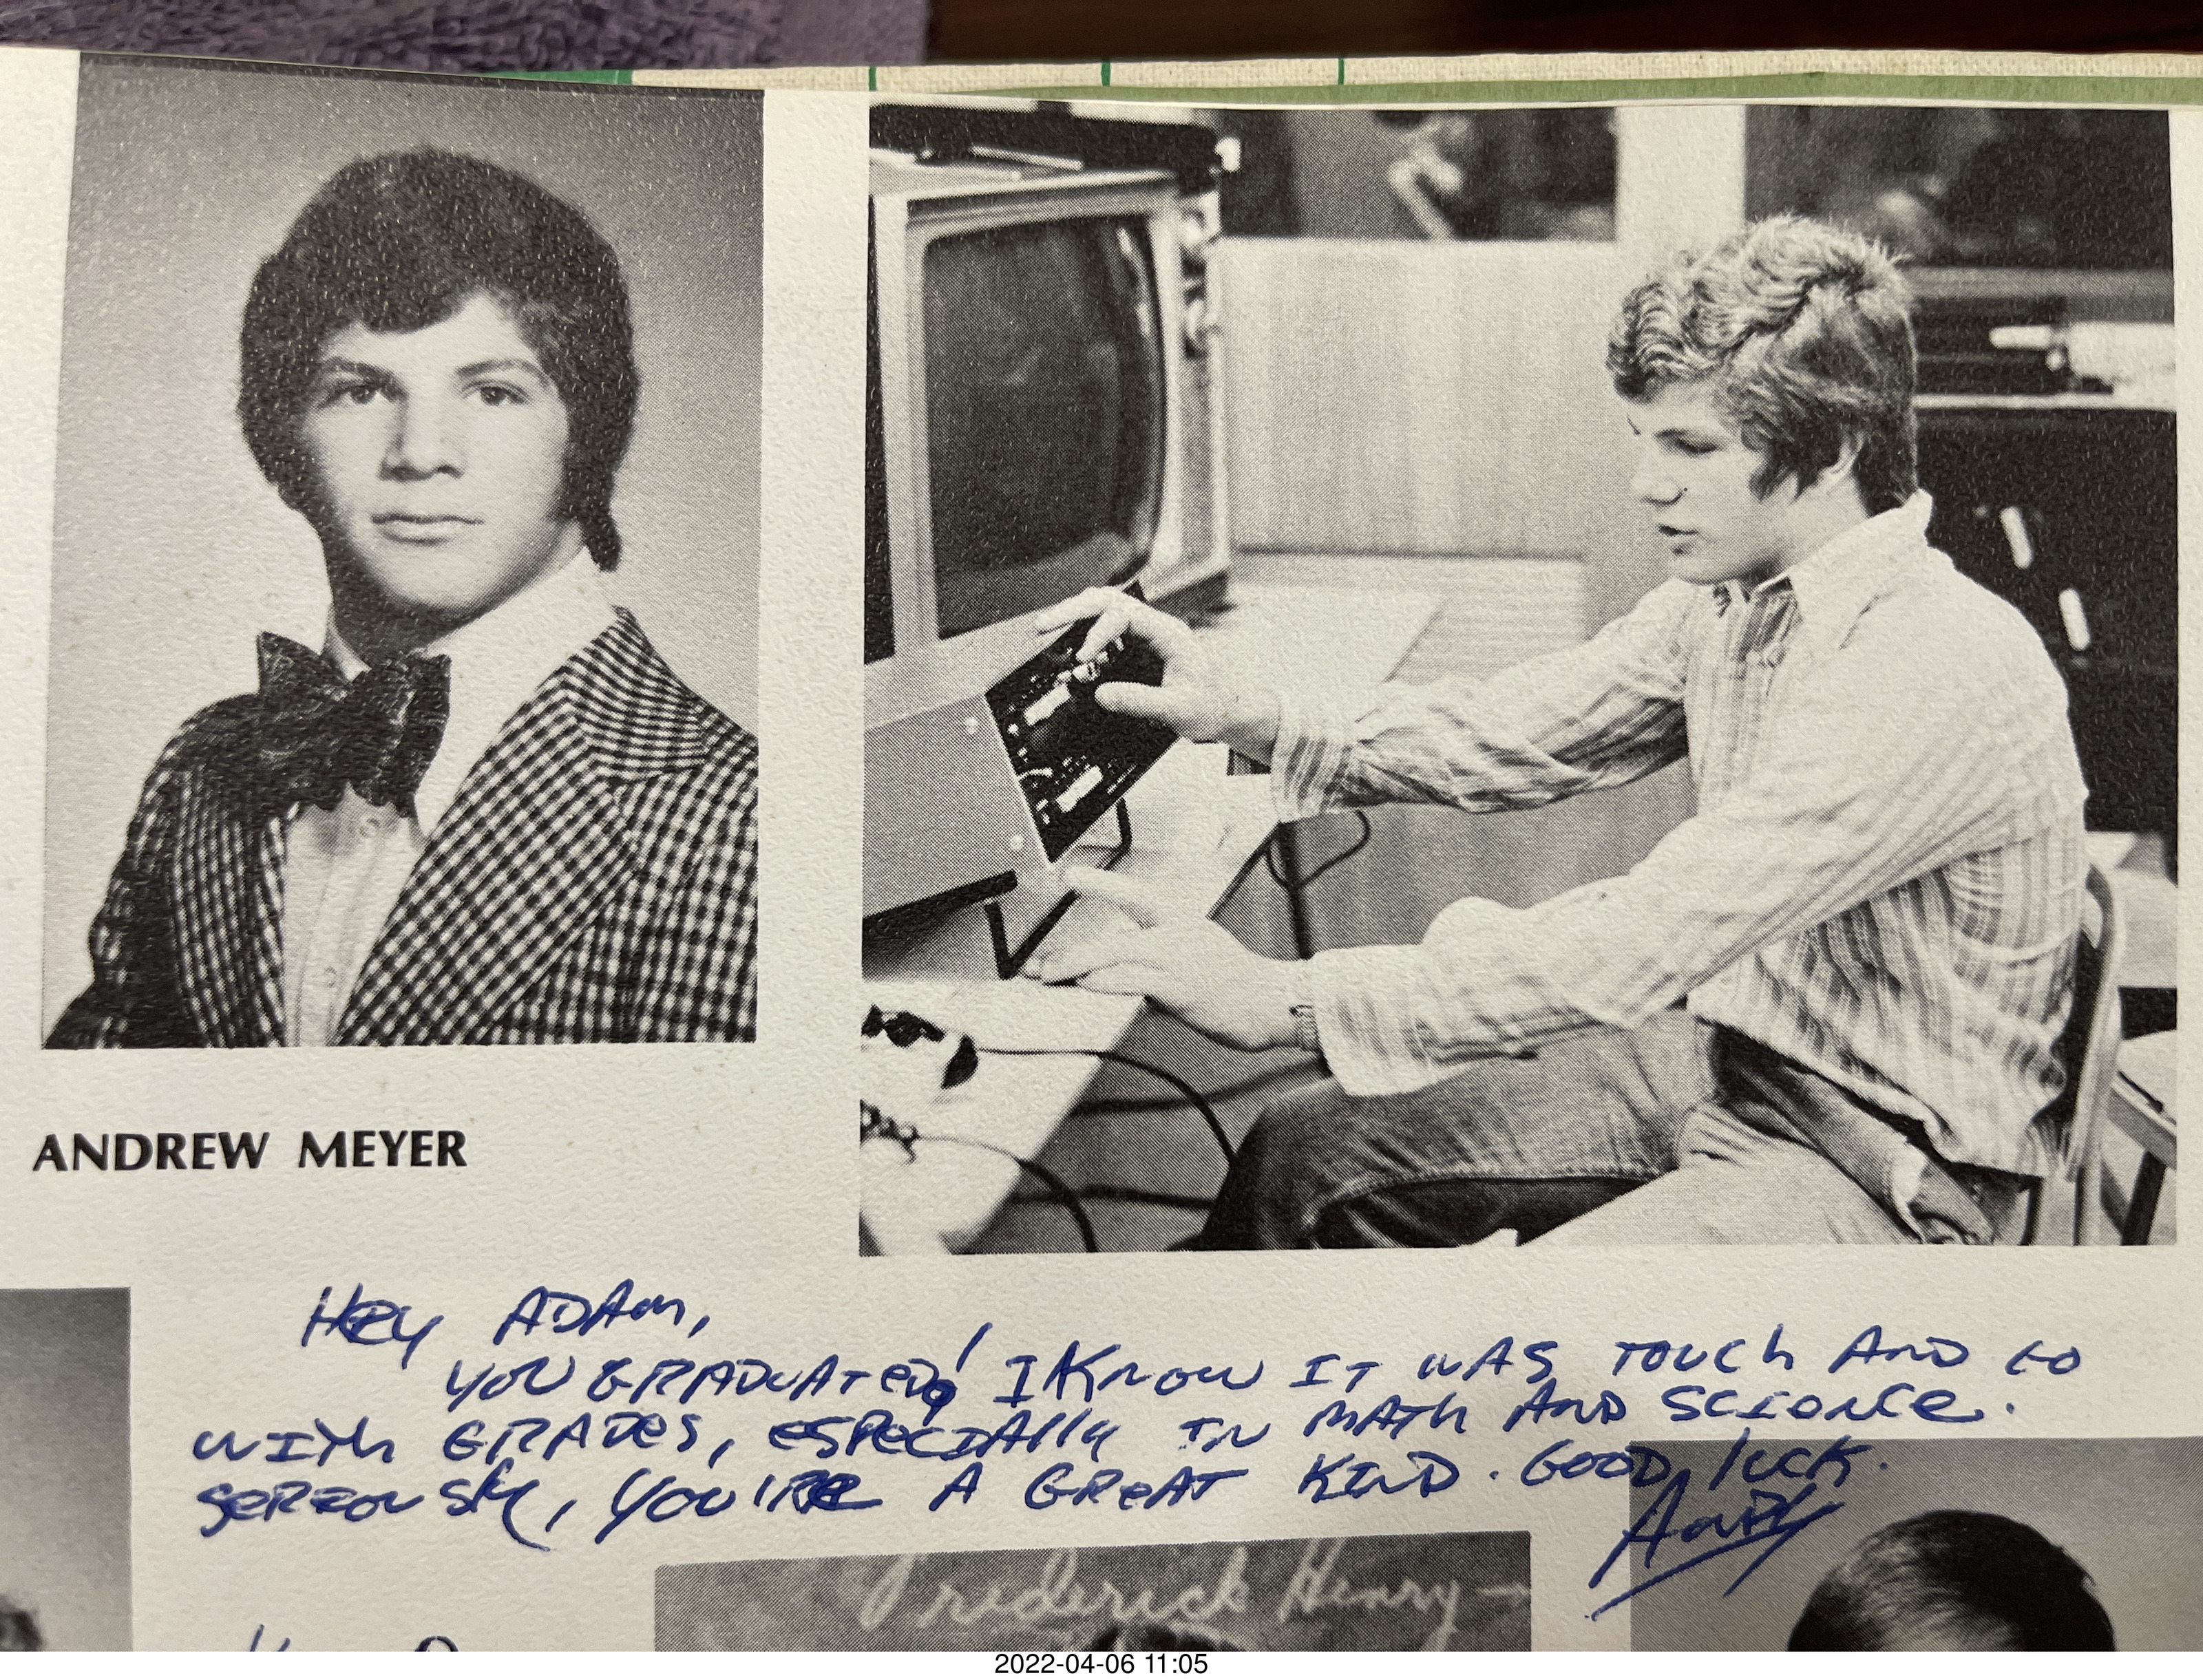 ANDREW MEYER
Hey ADAM,
YOU GRADUATED! I KNOW IT WAS TOUCH AND GO
WITH GRADES, ESPECIALLY IN MATH AND SCIENCE.
SERIOUSLY, YOU'RE A GREAT KIND. GOOD LUCK.
ANDY
Frederick Henry
2022-04-06 11:05